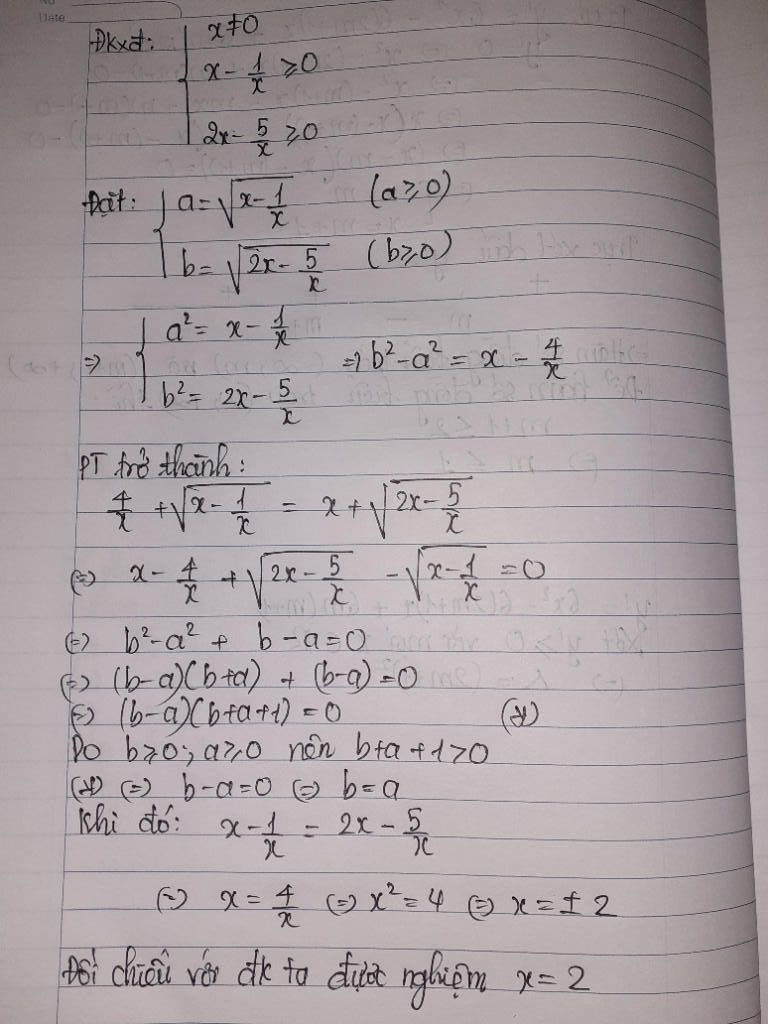 Date
Đkxđ: { x ≠ 0
x - 1/x ≥ 0
2x - 5/x ≥ 0
Đặt: { a = √(x - 1/x) (a ≥ 0)
b = √(2x - 5/x) (b ≥ 0)
⇒ { a² = x - 1/x
b² = 2x - 5/x ⇒ b² - a² = x - 4/x
PT trở thành:
4/x + √(x - 1/x) = x + √(2x - 5/x)
⇔ x - 4/x + √(2x - 5/x) - √(x - 1/x) = 0
⇔ b² - a² + b - a = 0
⇔ (b-a)(b+a) + (b-a) = 0
⇔ (b-a)(b+a+1) = 0 (*)
Do b ≥ 0; a ≥ 0 nên b+a+1 > 0
(*) ⇔ b-a=0 ⇔ b=a
Khi đó: x - 1/x = 2x - 5/x
⇔ x = 4/x ⇔ x² = 4 ⇔ x = ± 2
Đối chiếu với đk ta được nghiệm x = 2